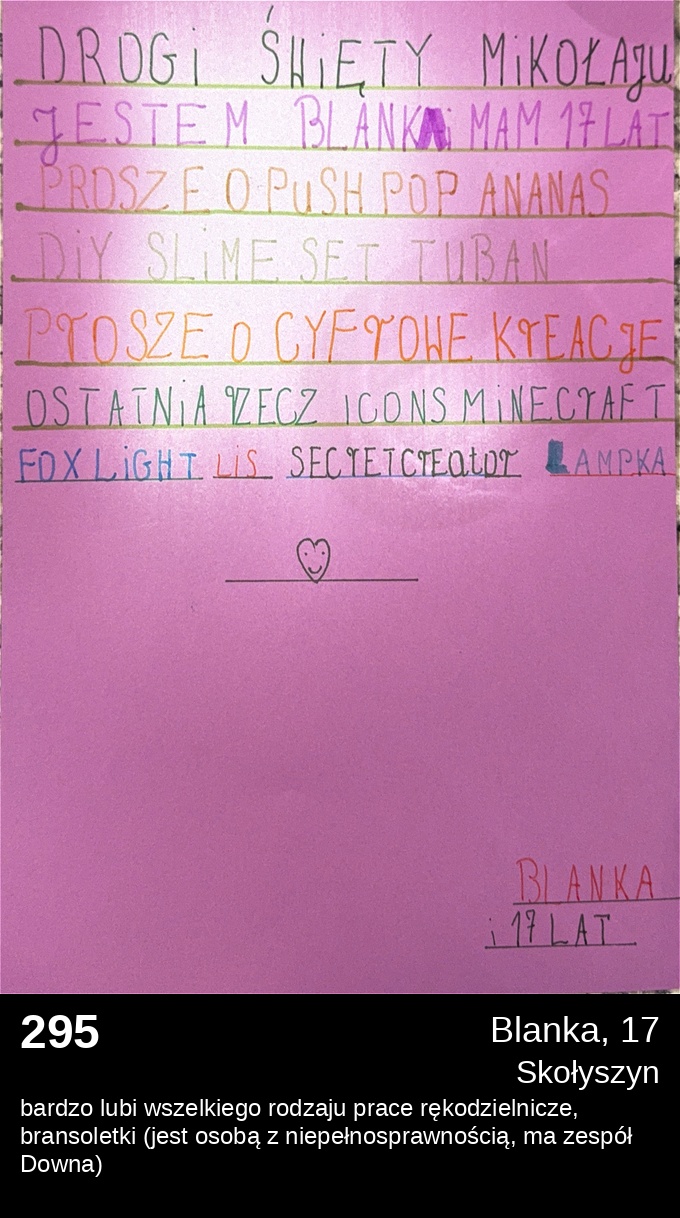 DROGi ŚWiĘTY MiKOŁAJU
JESTEM BLANKA i MAM 17 LAT
PROSZE O PuSH POP ANANAS
DiY SLiME SET TUBAN
PrOSZE O CYFrOWE KrEACJE
OSTATNiA RZECZ ICONS MiNECrAFT
FOX LiGHT LiS SECrETCrEator LAMPKA
BLANKA
i 17 LAT
295
Blanka, 17
Skołyszyn
bardzo lubi wszelkiego rodzaju prace rękodzielnicze,
bransoletki (jest osobą z niepełnosprawnością, ma zespół
Downa)